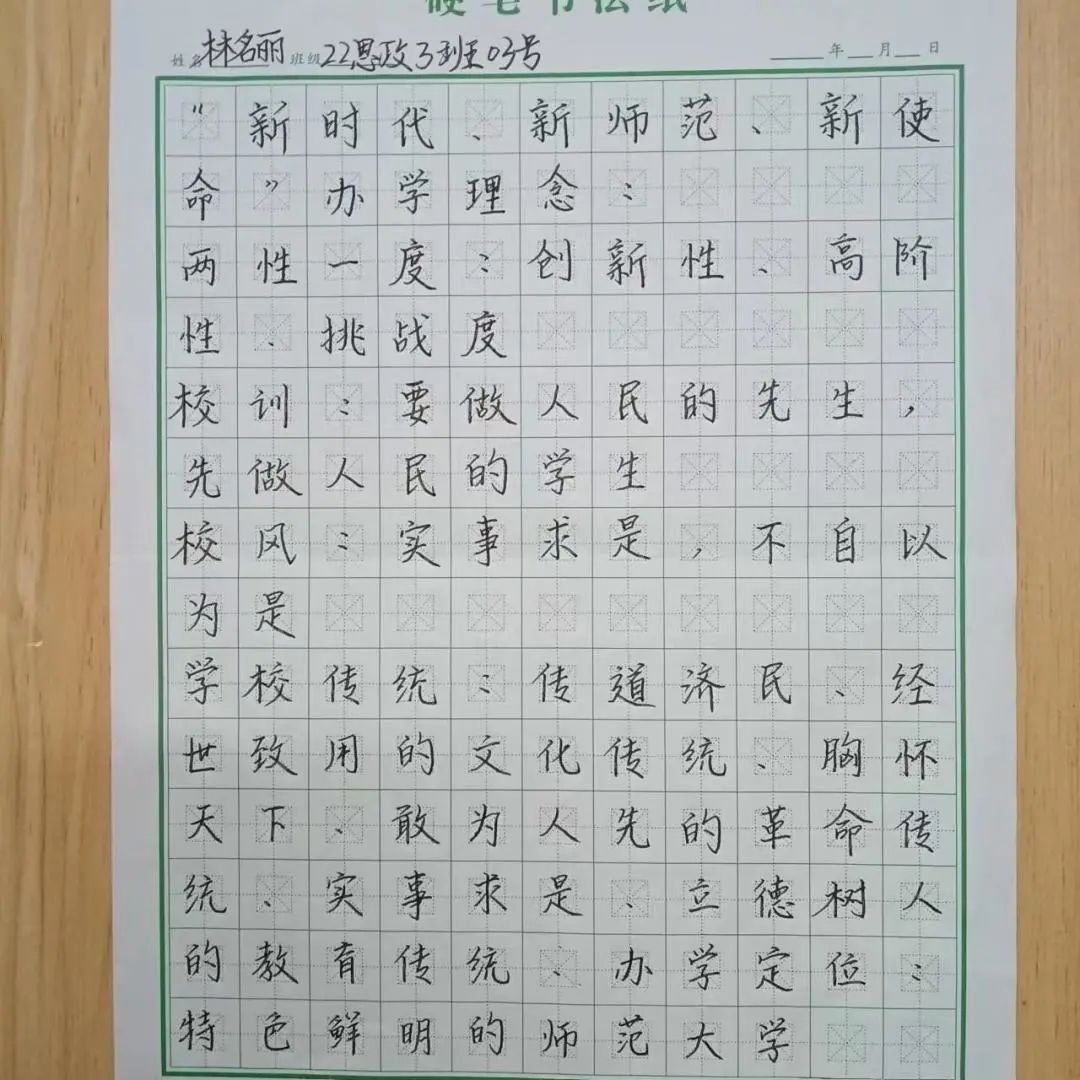 硬笔书法纸
姓名 林名丽 班级 22思政3班03号 年 月 日
“新时代、新师范、新使
命”办学理念：
两性一度：创新性、高阶
性、挑战度
校训：要做人民的先生，
先做人民的学生
校风：实事求是，不自以
为是
学校传统：传道济民、经
世致用的文化传统、胸怀
天下、敢为人先的革命传
统、实事求是、立德树人
的教育传统、办学定位：
特色鲜明的师范大学